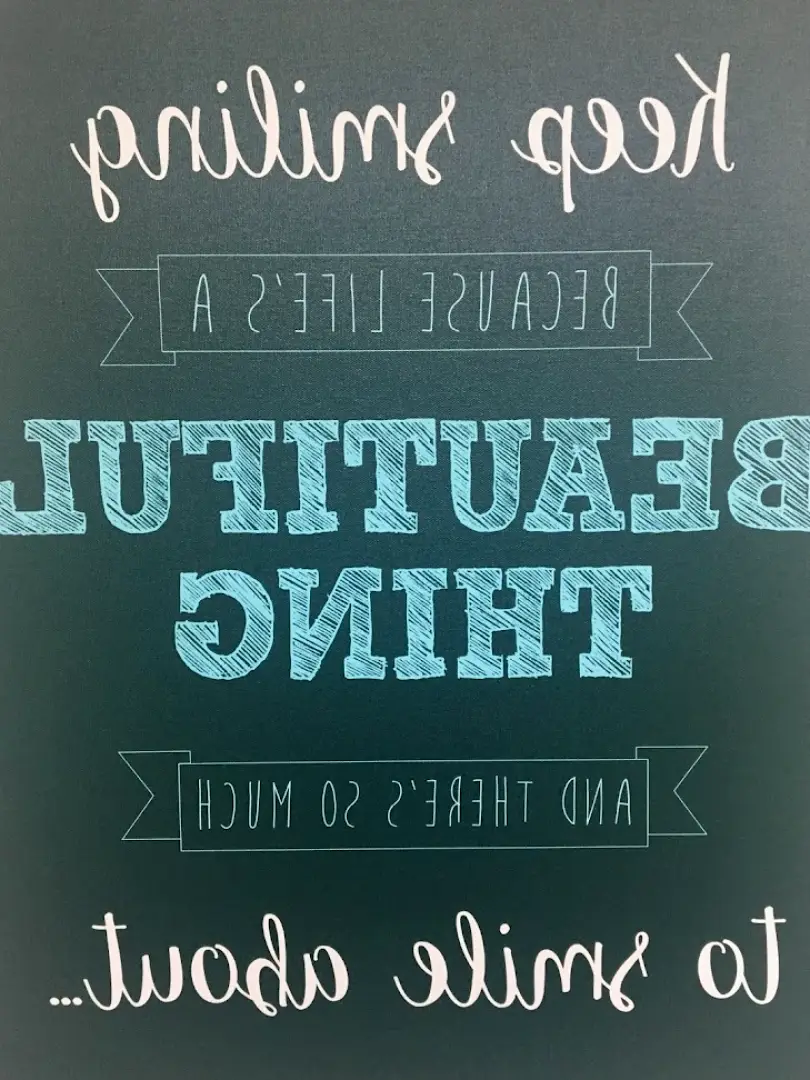 Keep smiling
BECAUSE LIFE'S A
BEAUTIFUL
THING
AND THERE'S SO MUCH
to smile about...